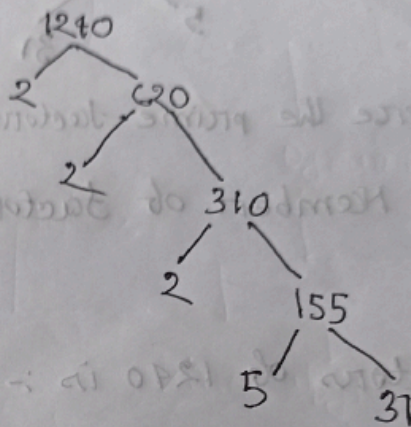 1240
2 620
2 310
2 155
5 31